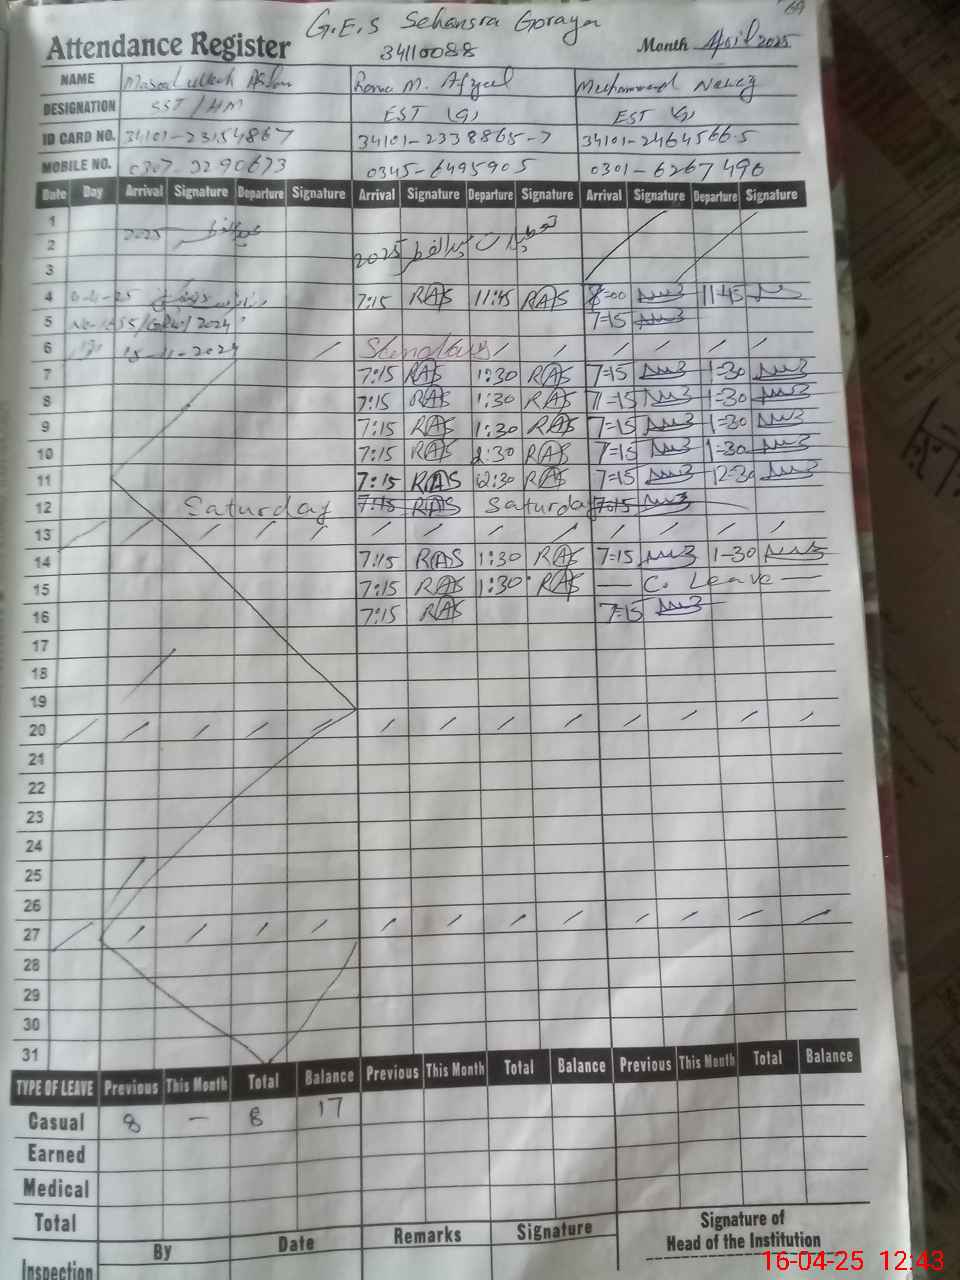 69
G.E.S Sehansra Goraya
Attendance Register 34110088 Month April 2025
NAME Masood Afzal M. Afzal Muhammad Nawaz
DESIGNATION SST / HM EST (G) EST (G)
ID CARD NO. 34101-2338865-7 34101-2464566-5
MOBILE NO. 0345-6495905 0301-6267496
Date Day Arrival Signature Departure Signature Arrival Signature Departure Signature Arrival Signature Departure Signature
1
2 2025 2025
3
4 7:15 RAS 11:45 RAS 8=00 11-45
5 2024 7=15
6 15-11-2024 Sunday
7 7:15 RAS 1:30 RAS 7=15 1=30
8 7:15 RAS 1:30 RAS 7=15 1=30
9 7:15 RAS 1:30 RAS 7=15 1=30
10 7:15 RAS 1:30 RAS 7=15 1=30
11 7:15 RAS 12:30 RAS 7=15 12=30
12 Saturday 7:15 RAS Saturday 7=15
13
14 7:15 RAS 1:30 RAS 7=15 1-30
15 7:15 RAS 1:30 RAS — C. Leave —
16 7:15 RAS 7=15
17
18
19
20
21
22
23
24
25
26
27
28
29
30
31
TYPE OF LEAVE Previous This Month Total Balance Previous This Month Total Balance Previous This Month Total Balance
Casual 8 — 8 17
Earned
Medical
Total
Inspection By Date Remarks Signature Signature of
Head of the Institution
16-04-25 12:43